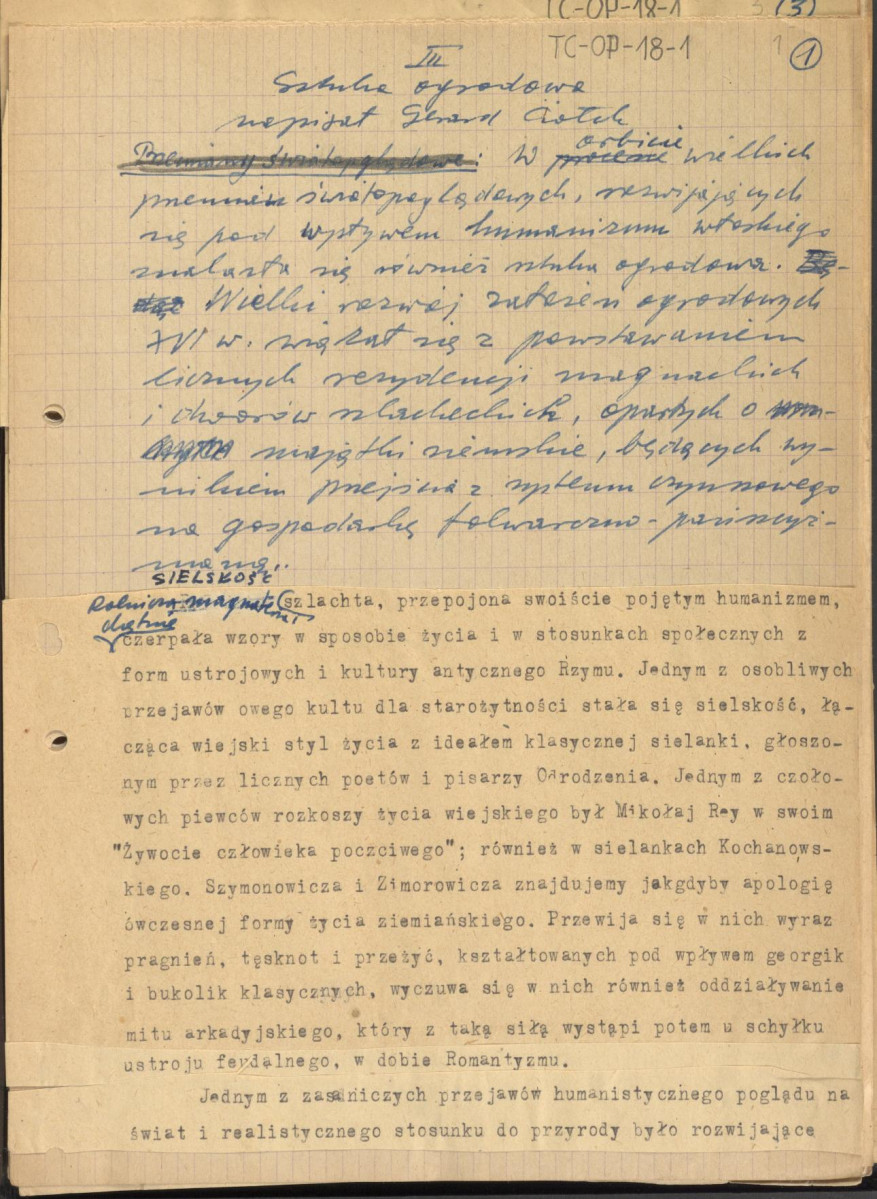 TC-OP-18-1 3 (3)
TC-OP-18-1 1 1
III
Sztuka ogrodowa
napisał Gerard Ciołek
Przemiany światopoglądowe: W procesie orbicie wielkich
przemian światopoglądowych, rozwijających
się pod wpływem humanizmu włoskiego
znalazła się również sztuka ogrodowa.
Wielki rozwój założeń ogrodowych
XVI w. wiązał się z powstawaniem
licznych rezydencji magnackich
i dworów szlacheckich, opartych o
majątki ziemskie, będących wy-
nikiem przejścia z systemu czynszowego
na gospodarkę folwarczno-pańszczyź-
nianą.
SIELSKOŚĆ
szlachta, przepojona swoiście pojętym humanizmem,
chętnie
czerpała wzory w sposobie życia i w stosunkach społecznych z
form ustrojowych i kultury antycznego Rzymu. Jednym z osobliwych
przejawów owego kultu dla starożytności stała się sielskość, łą-
cząca wiejski styl życia z ideałem klasycznej sielanki, głoszo-
nym przez licznych poetów i pisarzy Odrodzenia. Jednym z czoło-
wych piewców rozkoszy życia wiejskiego był Mikołaj Rey w swoim
"Żywocie człowieka poczciwego"; również w sielankach Kochanows-
kiego, Szymonowicza i Zimorowicza znajdujemy jakgdyby apologię
ówczesnej formy życia ziemiańskiego. Przewija się w nich wyraz
pragnień, tęsknot i przeżyć, kształtowanych pod wpływem georgik
i bukolik klasycznych, wyczuwa się w nich również oddziaływanie
mitu arkadyjskiego, który z taką siłą wystąpi potem u schyłku
ustroju feudalnego, w dobie Romantyzmu.
Jednym z zasadniczych przejawów humanistycznego poglądu na
świat i realistycznego stosunku do przyrody było rozwijające